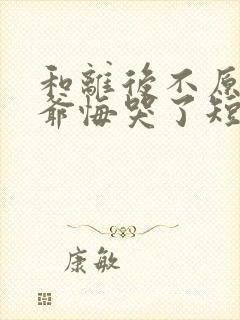 和離後不原
爺悔哭了短
康敏